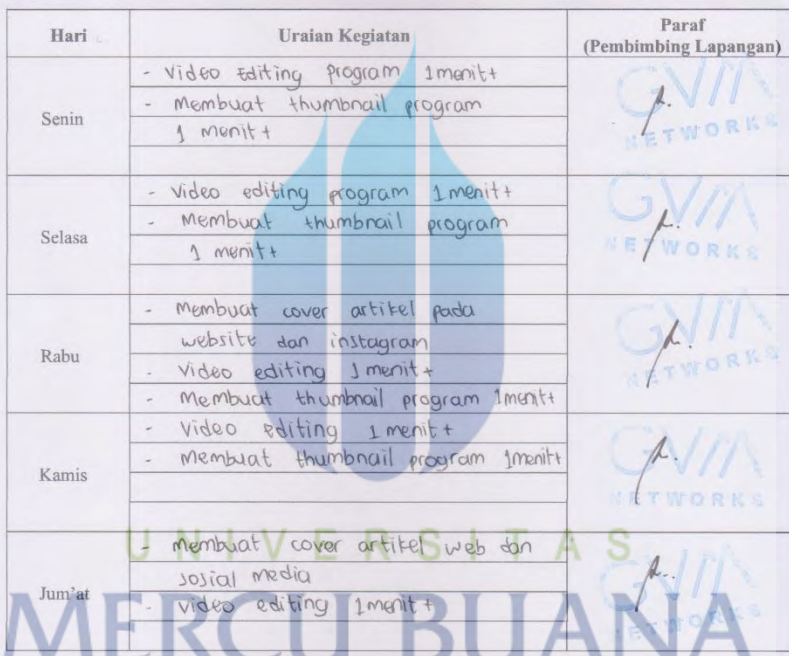 Hari Uraian Kegiatan Paraf
(Pembimbing Lapangan)
Senin
- Video Editing program 1menit+
- Membuat thumbnail program
1 menit+
GVM
NETWORKS
Selasa
- Video editing program 1menit+
- Membuat thumbnail program
1 menit+
GVM
NETWORKS
Rabu
- Membuat cover artikel pada
website dan instagram
- Video editing 1menit+
- Membuat thumbnail program 1menit+
GVM
NETWORKS
Kamis
- Video editing 1 menit+
- Membuat thumbnail program 1menit+
GVM
NETWORKS
Jum'at
- Membuat cover artikel web dan
sosial media
- Video editing 1menit+
GVM
NETWORKS
UNIVERSITAS
MERCU BUANA